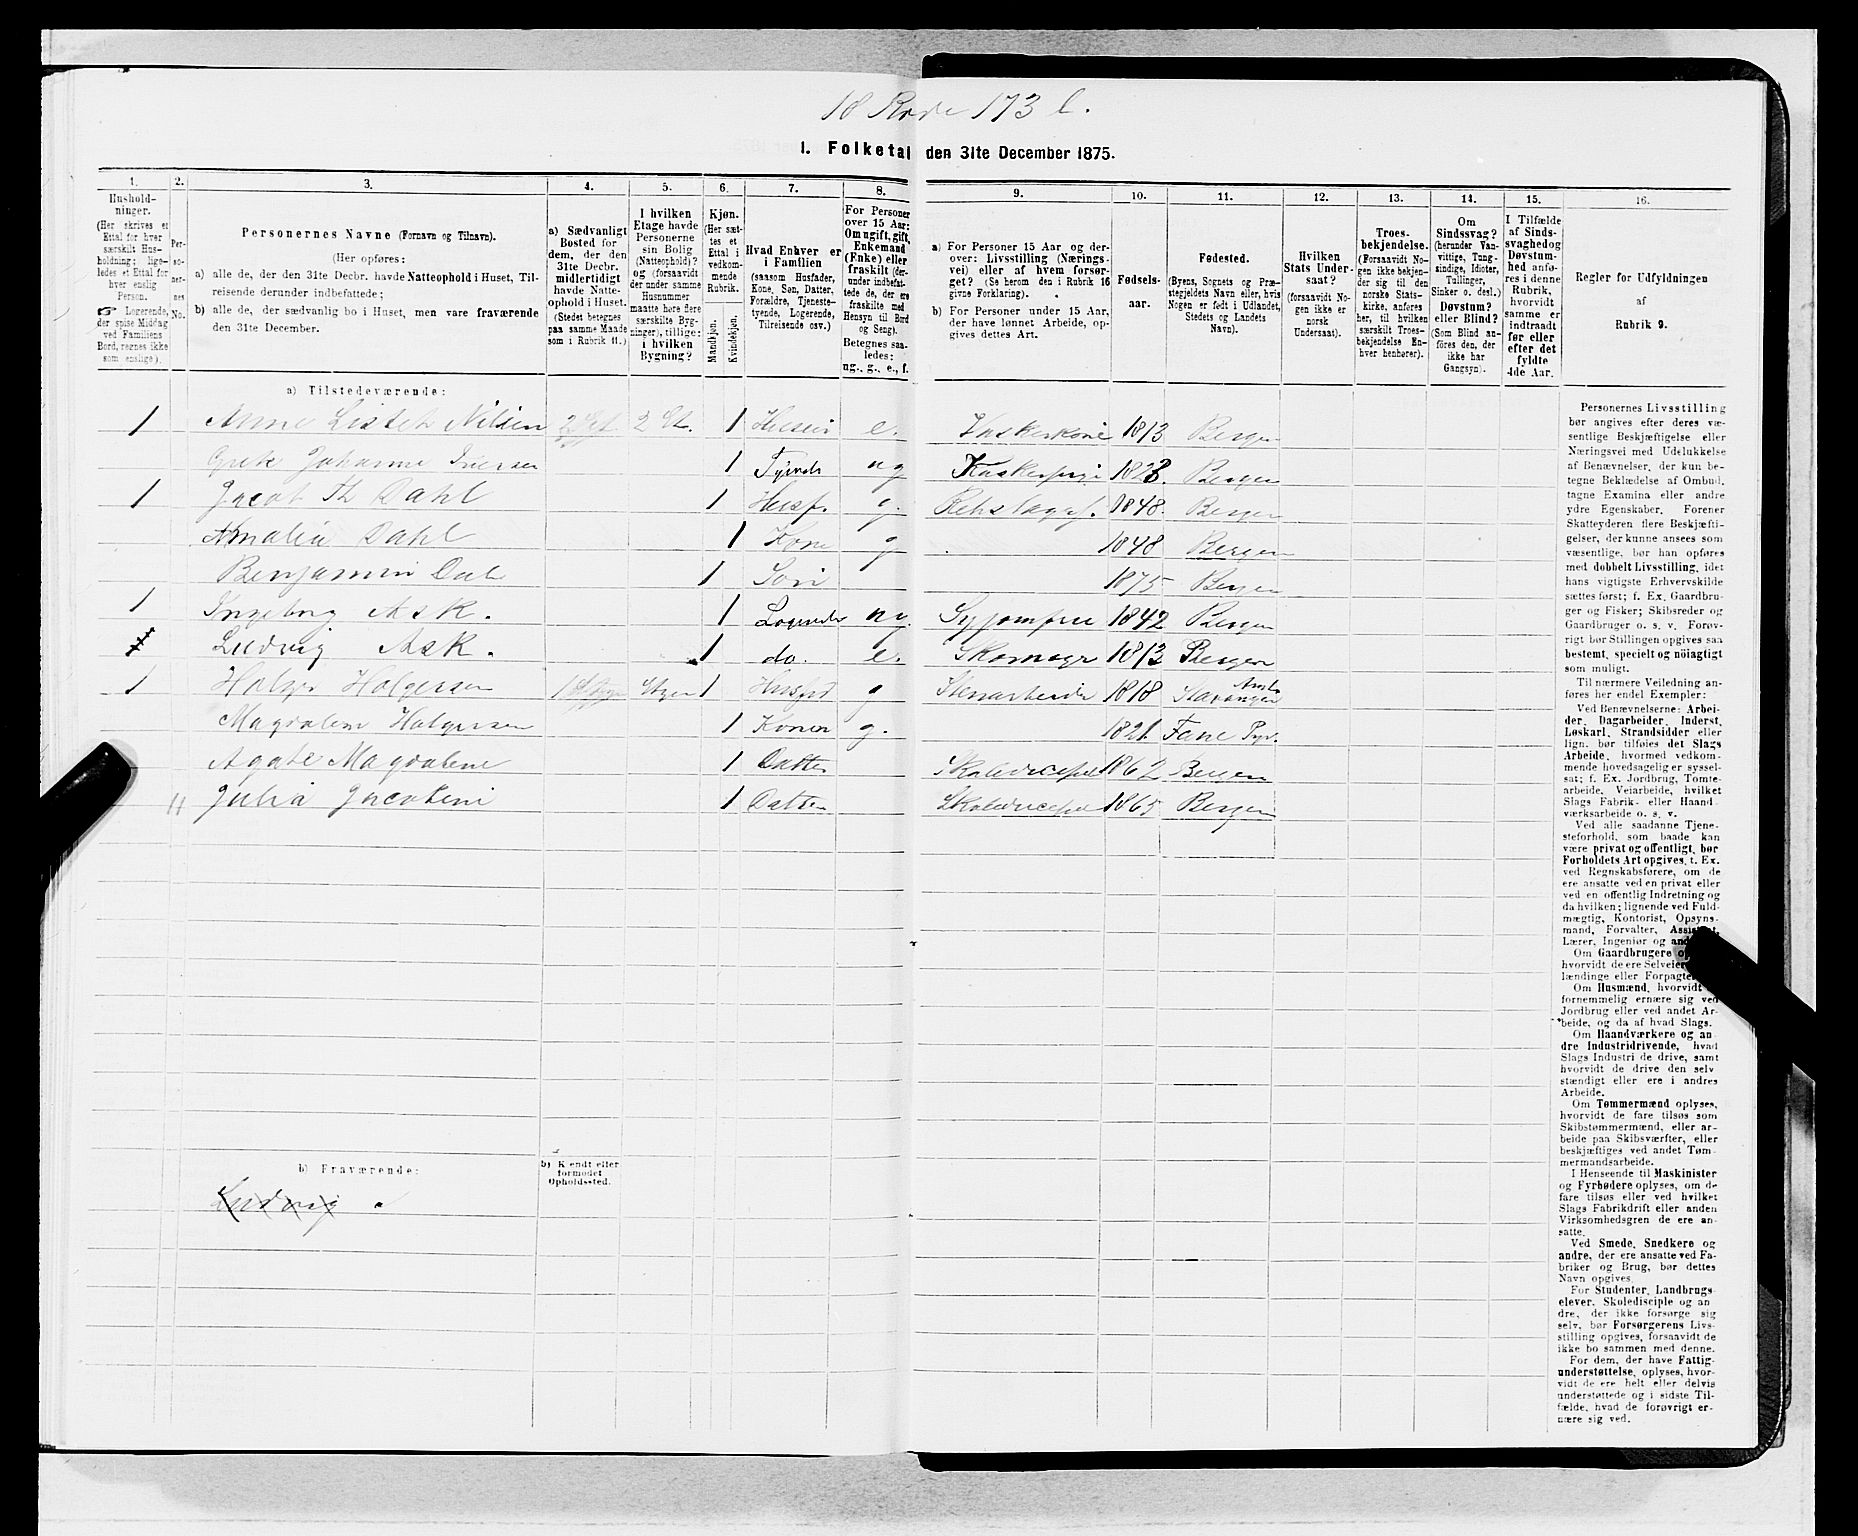 18 Rode 173 b.
1. Folketal den 31te December 1875.
1. 2. 3. 4. 5. 6. 7. 8. 9. 10. 11. 12. 13. 14. 15. 16.
Husholdninger.
(Her skrives et Ettal for hver særskilt Husholdning; ligeledes et Ettal for hver enslig Person.
☞ Logerende, der spise Middag ved Familiens Bord, regnes ikke som enslige).
Personernes No.
Personernes Navne (Fornavn og Tilnavn).
(Her opføres:
a) alle de, der den 31te Decbr. havde Natteophold i Huset, Tilreisende derunder indbefattede;
b) alle de, der sædvanlig bo i Huset, men vare fraværende den 31te December.
a) Sædvanligt Bosted for dem, der den 31te Decbr. midlertidigt havde Natteophold i Huset.
(Stedet betegnes paa samme Maade som i Rubrik 11.)
I hvilken Etage havde Personerne sin Bolig (Natteophold)? og (forsaavidt der under samme Husnummer maatte høre flere særskilte Bygninger), tillige: i hvilken Bygning?
Kjøn.
(Her sættes et Ettal i vedkommende Rubrik.
Mandkjøn.
Kvindekjøn.
Hvad Enhver er i Familien
(saasom Husfader, Kone, Søn, Datter, Forældre, Tjenestetyende, Logerende, Tilreisende osv.)
For Personer over 15 Aar: Om ugift, gift, Enkemand (Enke) eller fraskilt (derunder indbefattede de, der ere fraskilte med Hensyn til Bord og Seng). Betegnes saaledes: ug., g., e., f.
a) For Personer 15 Aar og derover: Livsstilling (Næringsvei) eller af hvem forsørget? (Se herom den i Rubrik 16 givne Forklaring).
b) For Personer under 15 Aar, der have lønnet Arbeide, opgives dettes Art.
Fødselsaar.
Fødested.
(Byens, Sognets og Præstegjeldets Navn eller, hvis Nogen er født i Udlandet, Stedets og Landets Navn).
Hvilken Stats Undersaat?
(forsaavidt Nogen ikke er norsk Undersaat).
Troesbekjendelse.
(Forsaavidt Nogen ikke bekjender sig til den norske Statskirke, anføres her, til hvilken særskilt Troesbekjendelse Enhver henhører).
Om Sindssvag?
(herunder Vanvittige, Tungsindige, Idioter, Tullinger, Sinker o. desl.)
Døvstum? eller Blind?
(Som Blind anføres den, der ikke har Gangsyn).
I Tilfælde af Sindssvaghed og Døvstumhed anføres i denne Rubrik, hvorvidt samme er indtraadt før eller efter det fyldte 4de Aar.
Regler for Udfyldningen
af
Rubrik 9.
a) Tilstedeværende:
1 Anne Lisbeth Nilsen 2 Et. 1 e. Vaskerkone 1813 Bergen
Grete Johanne Iversen 1 ug 1823. Bergen
1 Jacob Th Dahl 1 Husf. g. 1848. Bergen
Amalia Dahl 1 Kone g 1848 Bergen
Benjamin Dahl 1 Søn 1875 Bergen
1 Ingeborg Ask. 1 Logerende ug. Syjomfru 1842 Bergen
Ludvig Ask. 1 do. e. Skomager 1813 Bergen
1 Holger Holgersen 1 Husfad g Stenarbeide 1818 Stavanger Amt
Magdalene Holgersen 1 Konen g. 1821. Fane
Agate Magdalene 1 Datter Skoledicepel 1862 Bergen
11 Julia Jacobine 1 Datter Skoledicepel 1865 Bergen
b) Fraværende:
b) Kjendt eller formodet Opholdssted.
Ludvig
Personernes Livsstilling bør angives efter deres væsentlige Beskjæftigelse eller Næringsvei med Udelukkelse af Benævnelser, der kun betegne Beklædelse af Ombud, tagne Examina eller andre ydre Egenskaber. Forener Skatteyderen flere Beskjæftigelser, der kunne ansees som væsentlige, bør han opføres med dobbelt Livsstilling, idet hans vigtigste Erhvervskilde sættes først; f. Ex. Gaardbruger og Fisker; Skibsreder og Gaardbruger o. s. v. Forøvrigt bør Stillingen opgives saa bestemt, specielt og nöiagtigt som muligt.
Til nærmere Veiledning anføres her endel Exempler:
Ved Benævnelserne: Arbeider, Dagarbeider, Inderst, Løskarl, Strandsidder eller lign. bør tilføies det Slags Arbeide, hvormed vedkommende hovedsagelig er sysselsat; f. Ex. Jordbrug, Tomtearbeide, Veiarbeide, hvilket Slags Fabrik- eller Haandværksarbeide o. s. v.
Ved alle saadanne Tjenesteforhold, som baade kan være privat og offentligt, bør Forholdets Art opgives, t. Ex. ved Regnskabsførere, om de ere ansatte ved en privat eller ved en offentlig Indretning og da hvilken; lignende ved Fuldmægtig, Kontorist, Opsynsmand, Forvalter, Assistent, Lærer, Ingeniør og
Om Gaardbrugere hvorvidt de ere Selveiere, lændinge eller Forpagtere.
Om Husmænd, hvorvidt fornemmelig ernære sig ved Jordbrug eller ved andet Arbeide, og da af hvad Slags.
Om Haandværkere og andre Industridrivende, hvad Slags Industri de drive, samt hvorvidt de drive den selvstændigt eller ere i andres Arbeide.
Om Tømmermænd oplyses, hvorvidt de fare tilsøs som Skibstømmermænd, eller arbeide paa Skibsværfter, eller beskjæftiges ved andet Tømmermandsarbeide.
I Henseende til Maskinister og Fyrbødere oplyses, om de fare tilsøs eller ved hvilket Slags Fabrikdrift eller anden Virksomhedsgren de ere ansatte.
Ved Smede, Snedkere og andre, der ere ansatte ved Fabriker og Brug, bør dettes Navn opgives.
For Studenter, Landbrugselever, Skoledisciple og andre, der ikke forsørge sig selv, bør Forsørgerens Livsstilling opgives, forsaavidt de ikke bo sammen med denne.
For dem, der have Fattigunderstøttelse, oplyses, hvorvidt de ere helt eller delvis understøttede og i sidste Tilfælde, hvad de forøvrigt ernære sig ved.